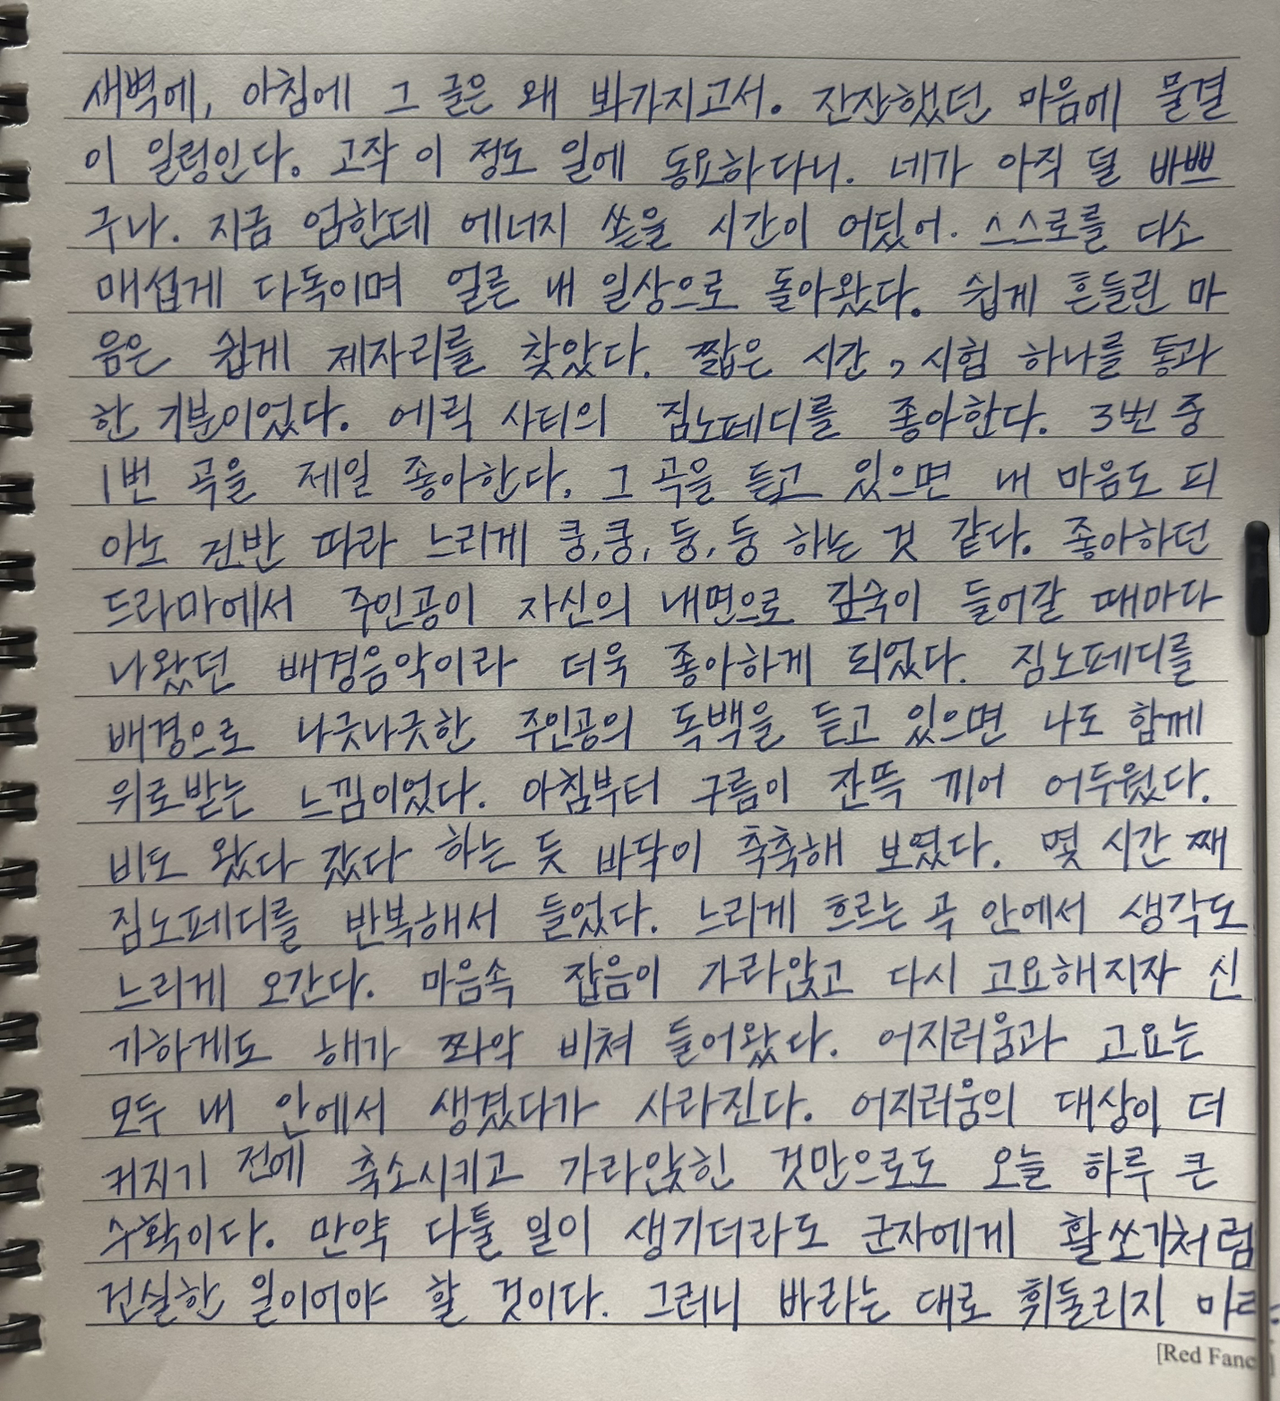 새벽에, 아침에 그 글은 왜 봐가지고서. 잔잔했던 마음에 물결
이 일렁인다. 고작 이 정도 일에 동요하다니. 네가 아직 덜 바쁘
구나. 지금 엄한데 에너지 쏟을 시간이 어딨어. 스스로를 다소
매섭게 다독이며 얼른 내 일상으로 돌아왔다. 쉽게 흔들린 마
음은 쉽게 제자리를 찾았다. 짧은 시간, 시험 하나를 통과
한 기분이었다. 에릭 사티의 짐노페디를 좋아한다. 3번 중
1번 곡을 제일 좋아한다. 그 곡을 듣고 있으면 내 마음도 피
아노 건반 따라 느리게 쿵, 쿵, 둥, 둥 하는 것 같다. 좋아하던
드라마에서 주인공이 자신의 내면으로 깊숙이 들어갈 때마다
나왔던 배경음악이라 더욱 좋아하게 되었다. 짐노페디를
배경으로 나긋나긋한 주인공의 독백을 듣고 있으면 나도 함께
위로받는 느낌이었다. 아침부터 구름이 잔뜩 끼어 어두웠다.
비도 왔다 갔다 하는 듯 바닥이 축축해 보였다. 몇 시간 째
짐노페디를 반복해서 들었다. 느리게 흐르는 곡 안에서 생각도
느리게 오간다. 마음속 잡음이 가라앉고 다시 고요해지자 신
기하게도 해가 쫘악 비쳐 들어왔다. 어지러움과 고요는
모두 내 안에서 생겼다가 사라진다. 어지러움의 대상이 더
커지기 전에 축소시키고 가라앉힌 것만으로도 오늘 하루 큰
수확이다. 만약 다툴 일이 생기더라도 군자에게 활쏘기처럼
건실한 일이어야 할 것이다. 그러니 바라는 대로 휘둘리지 마라.
[Red Fanc